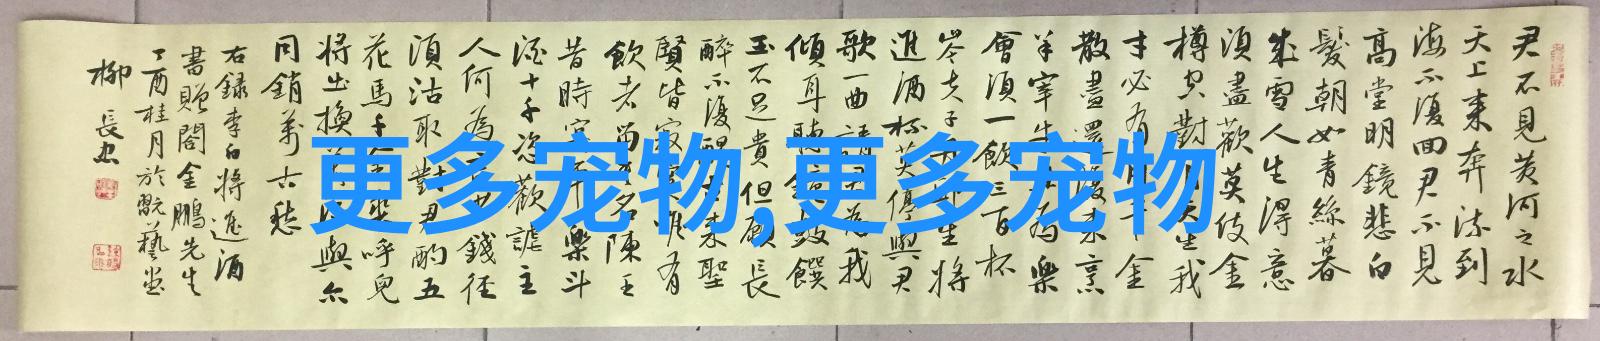 君不見黃河之水
天上來奔流到
海不復回君不見
高堂明鏡悲白
髮朝如青絲暮
成雪人生得意
須盡歡莫使金
樽空對月天生我
才必有用千金
散盡還復來烹
羊宰牛且為樂
會須一飲三百杯
岑夫子丹丘生將
進酒杯莫停與君
歌一曲請君為我
傾耳聽鐘鼓饌
玉不足貴但願長
醉不復醒古來聖
賢皆寂寞唯有
飲者留其名陳王
昔時宴平樂斗
酒十千恣歡謔主
人何為言少錢徑
須沽取對君酌五
花馬千金裘呼兒
將出換美酒與尔
同銷萬古愁
右録李白將進酒
書贈閤金鵬先生
丁酉桂月於翫藝堂
柳長忠
更多宠物,更多宠物